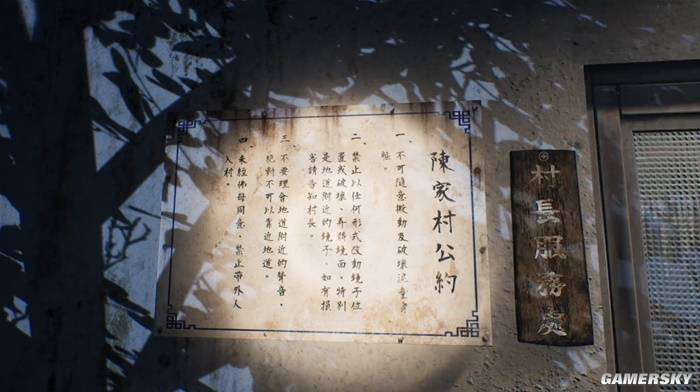 陳家村公約
一、不可隨意搬動及破壞泥童身
軀。
二、禁止以任何形式改動鏡子位
置或破壞、弄髒鏡面。特別
是地道附近的鏡子，如有損
害請告知村長。
三、不要理會地道附近的聲音，
絕對不可以靠近地道。
四、未經佛母同意，禁止帶外人
入村。
村長服務處
GAMERSKY